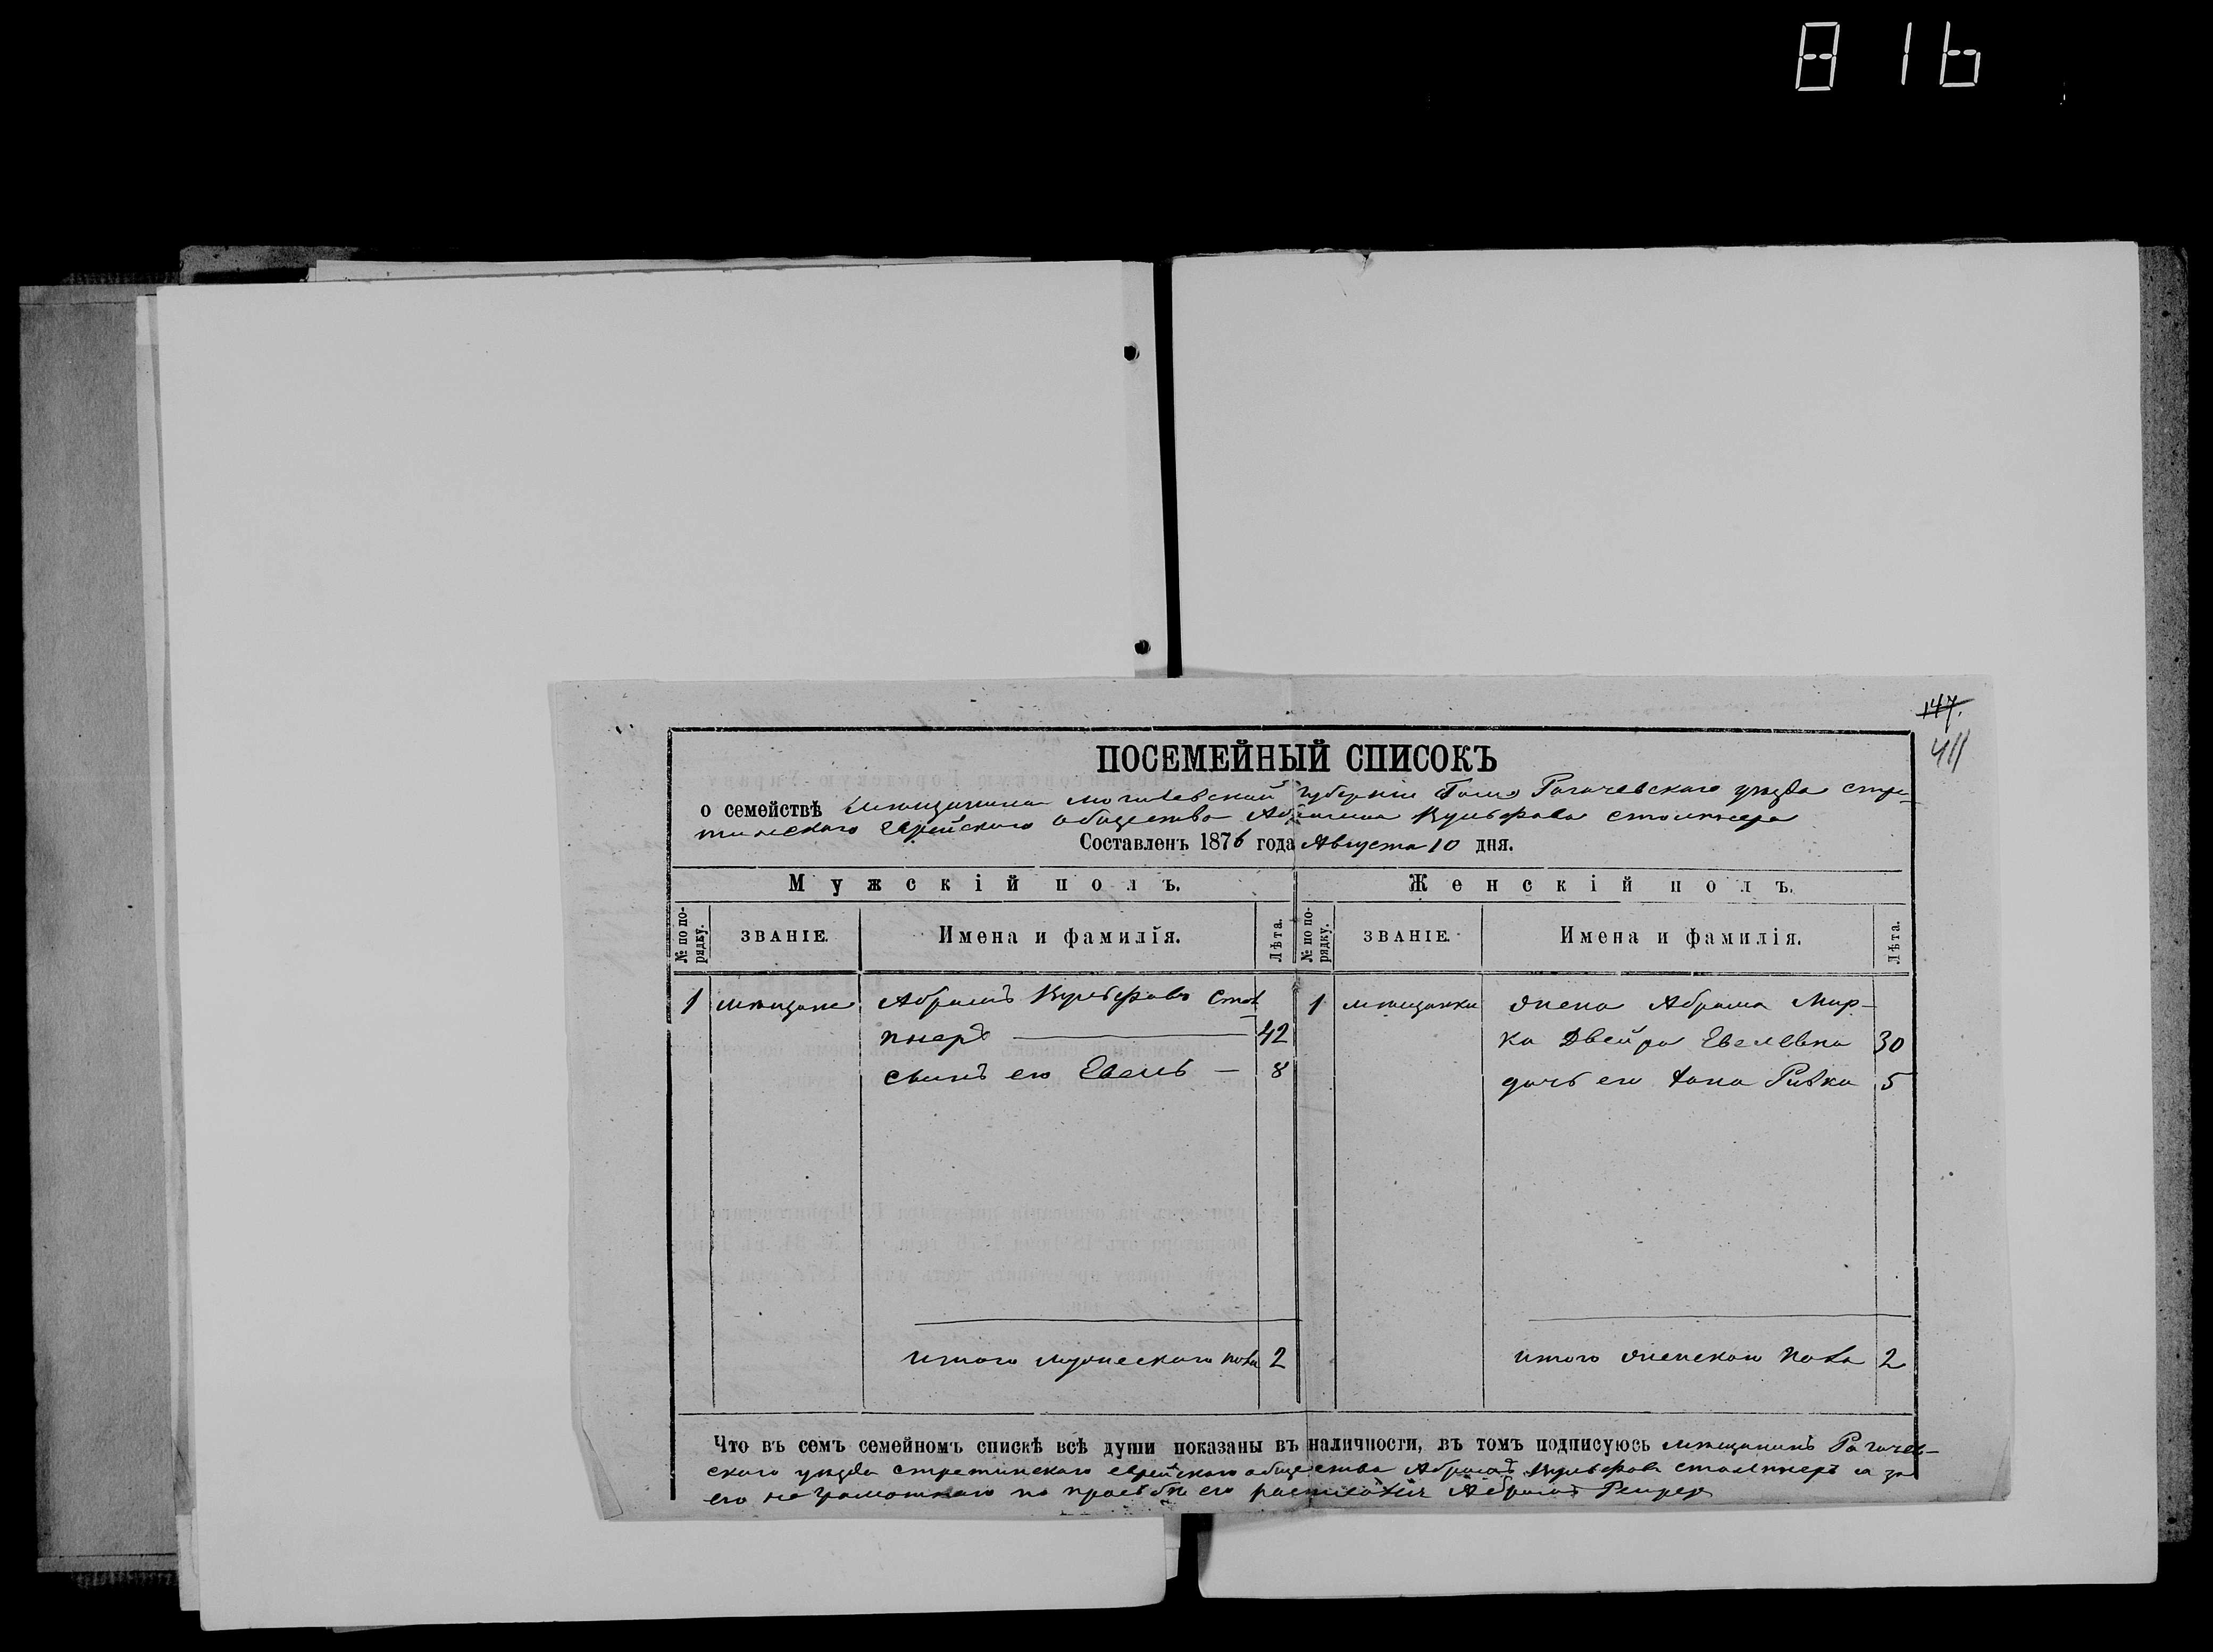 816
147.
411
ПОСЕМЕЙНЫЙ СПИСОКЪ
о семействѣ мѣщанина могилевской губерніи Рогачевскаго уѣзда стре-
тинскаго Еврейскаго общества Абрама Вульфова столпнера
Составленъ 1876 года Августа 10 дня.
Мужскій полъ. Женскій полъ.
№ по по-рядку. ЗВАНІЕ. Имена и фамилія. Лѣта. № по по-рядку. ЗВАНІЕ. Имена и фамилія. Лѣта.
1 мѣщане Абрамъ Вульфовъ Стол 1 мѣщанки жена Абрама Мир-
пнеръ — 42 ка Двейра Евелевна 30
сынъ его Евель — 8 дочь его Хана Ривка 5
итого мужескаго пола 2 итого женскаго пола 2
Что въ семъ семейномъ спискѣ всѣ души показаны въ наличности, въ томъ подписуюсь мѣщанинъ Рогачев-
скаго уѣзда стретинскаго еврейскаго общества Абрамъ Вульфовъ столпнеръ а за
его неграмотнаго по просьбѣ его росписался Абрамъ